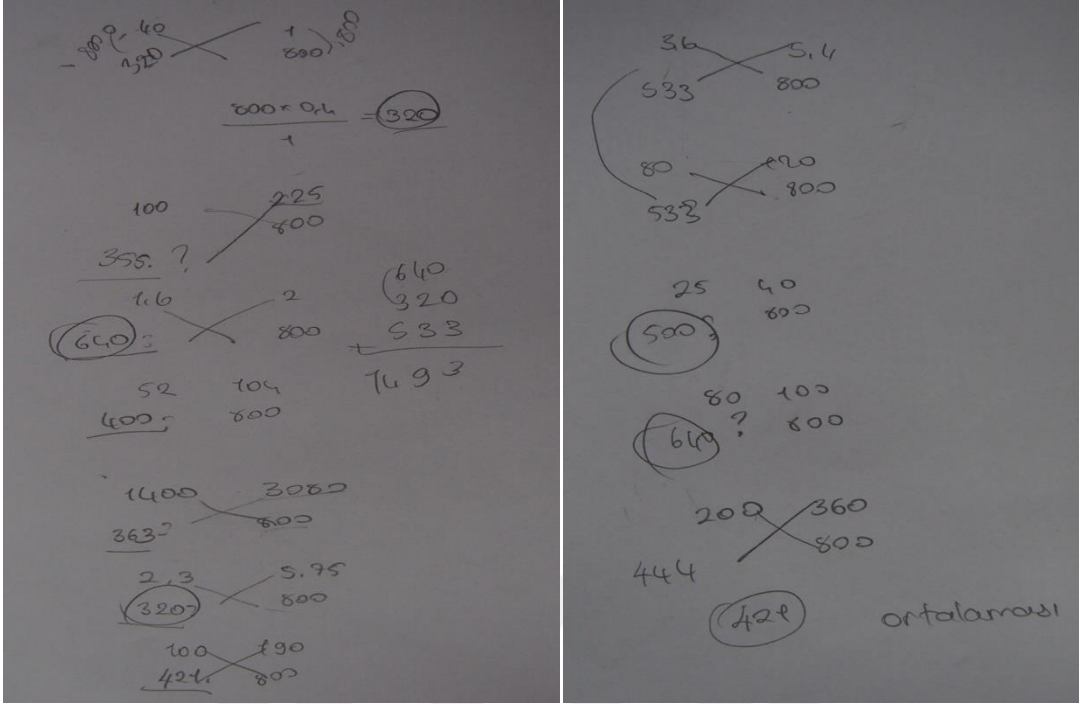 0,40 1
320 800
800 × 0,4 = 320
1
100 225
800
355. ?
1.6 2
640 ? 800
640
320
+ 533
1493
52 104
400 ? 800
1400 3080
363 ? 800
2,3 5.75
320 ? 800
100 190
421. 800
3,6 5,4
533 800
80 120
533 800
25 40
500 ? 800
80 100
640 ? 800
200 360
800
444
421 ortalaması